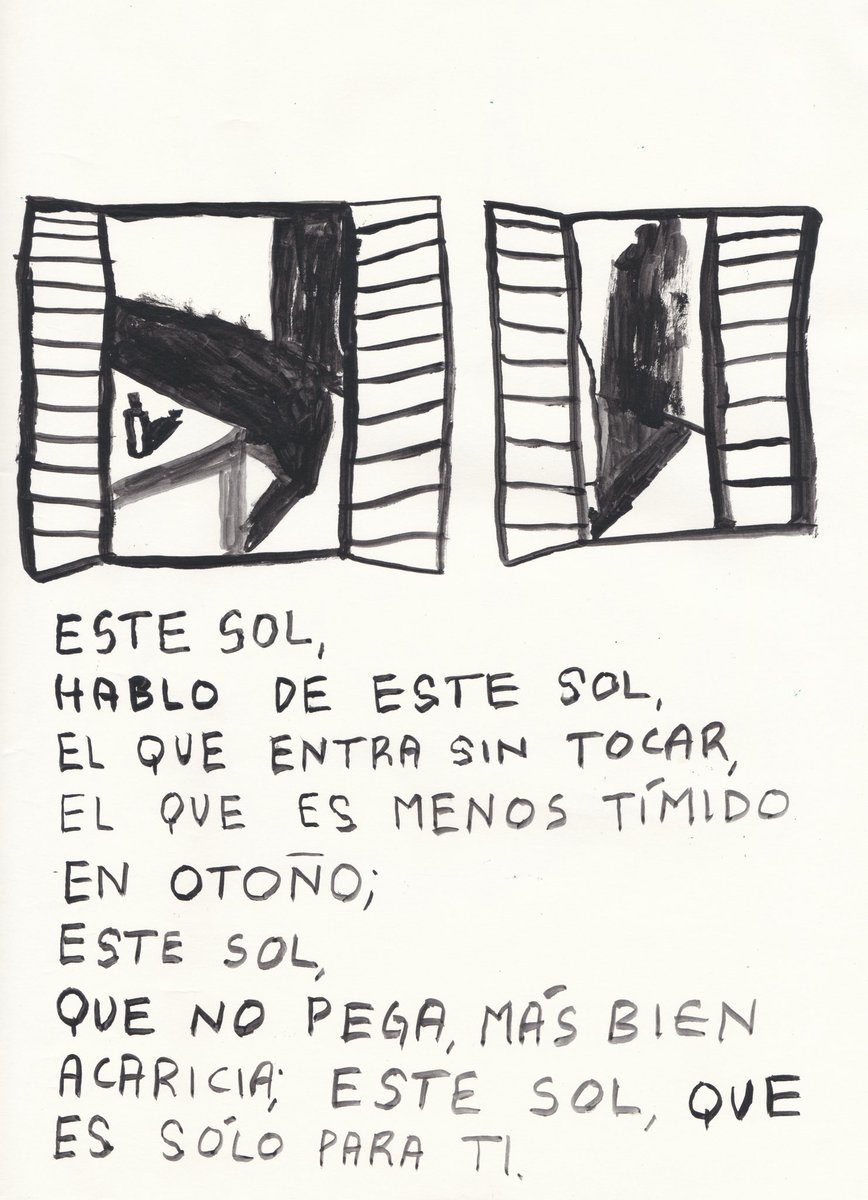 ESTE SOL,
HABLO DE ESTE SOL,
EL QUE ENTRA SIN TOCAR,
EL QUE ES MENOS TÍMIDO
EN OTOÑO;
ESTE SOL,
QUE NO PEGA, MÁS BIEN
ACARICIA; ESTE SOL, QUE
ES SÓLO PARA TI.